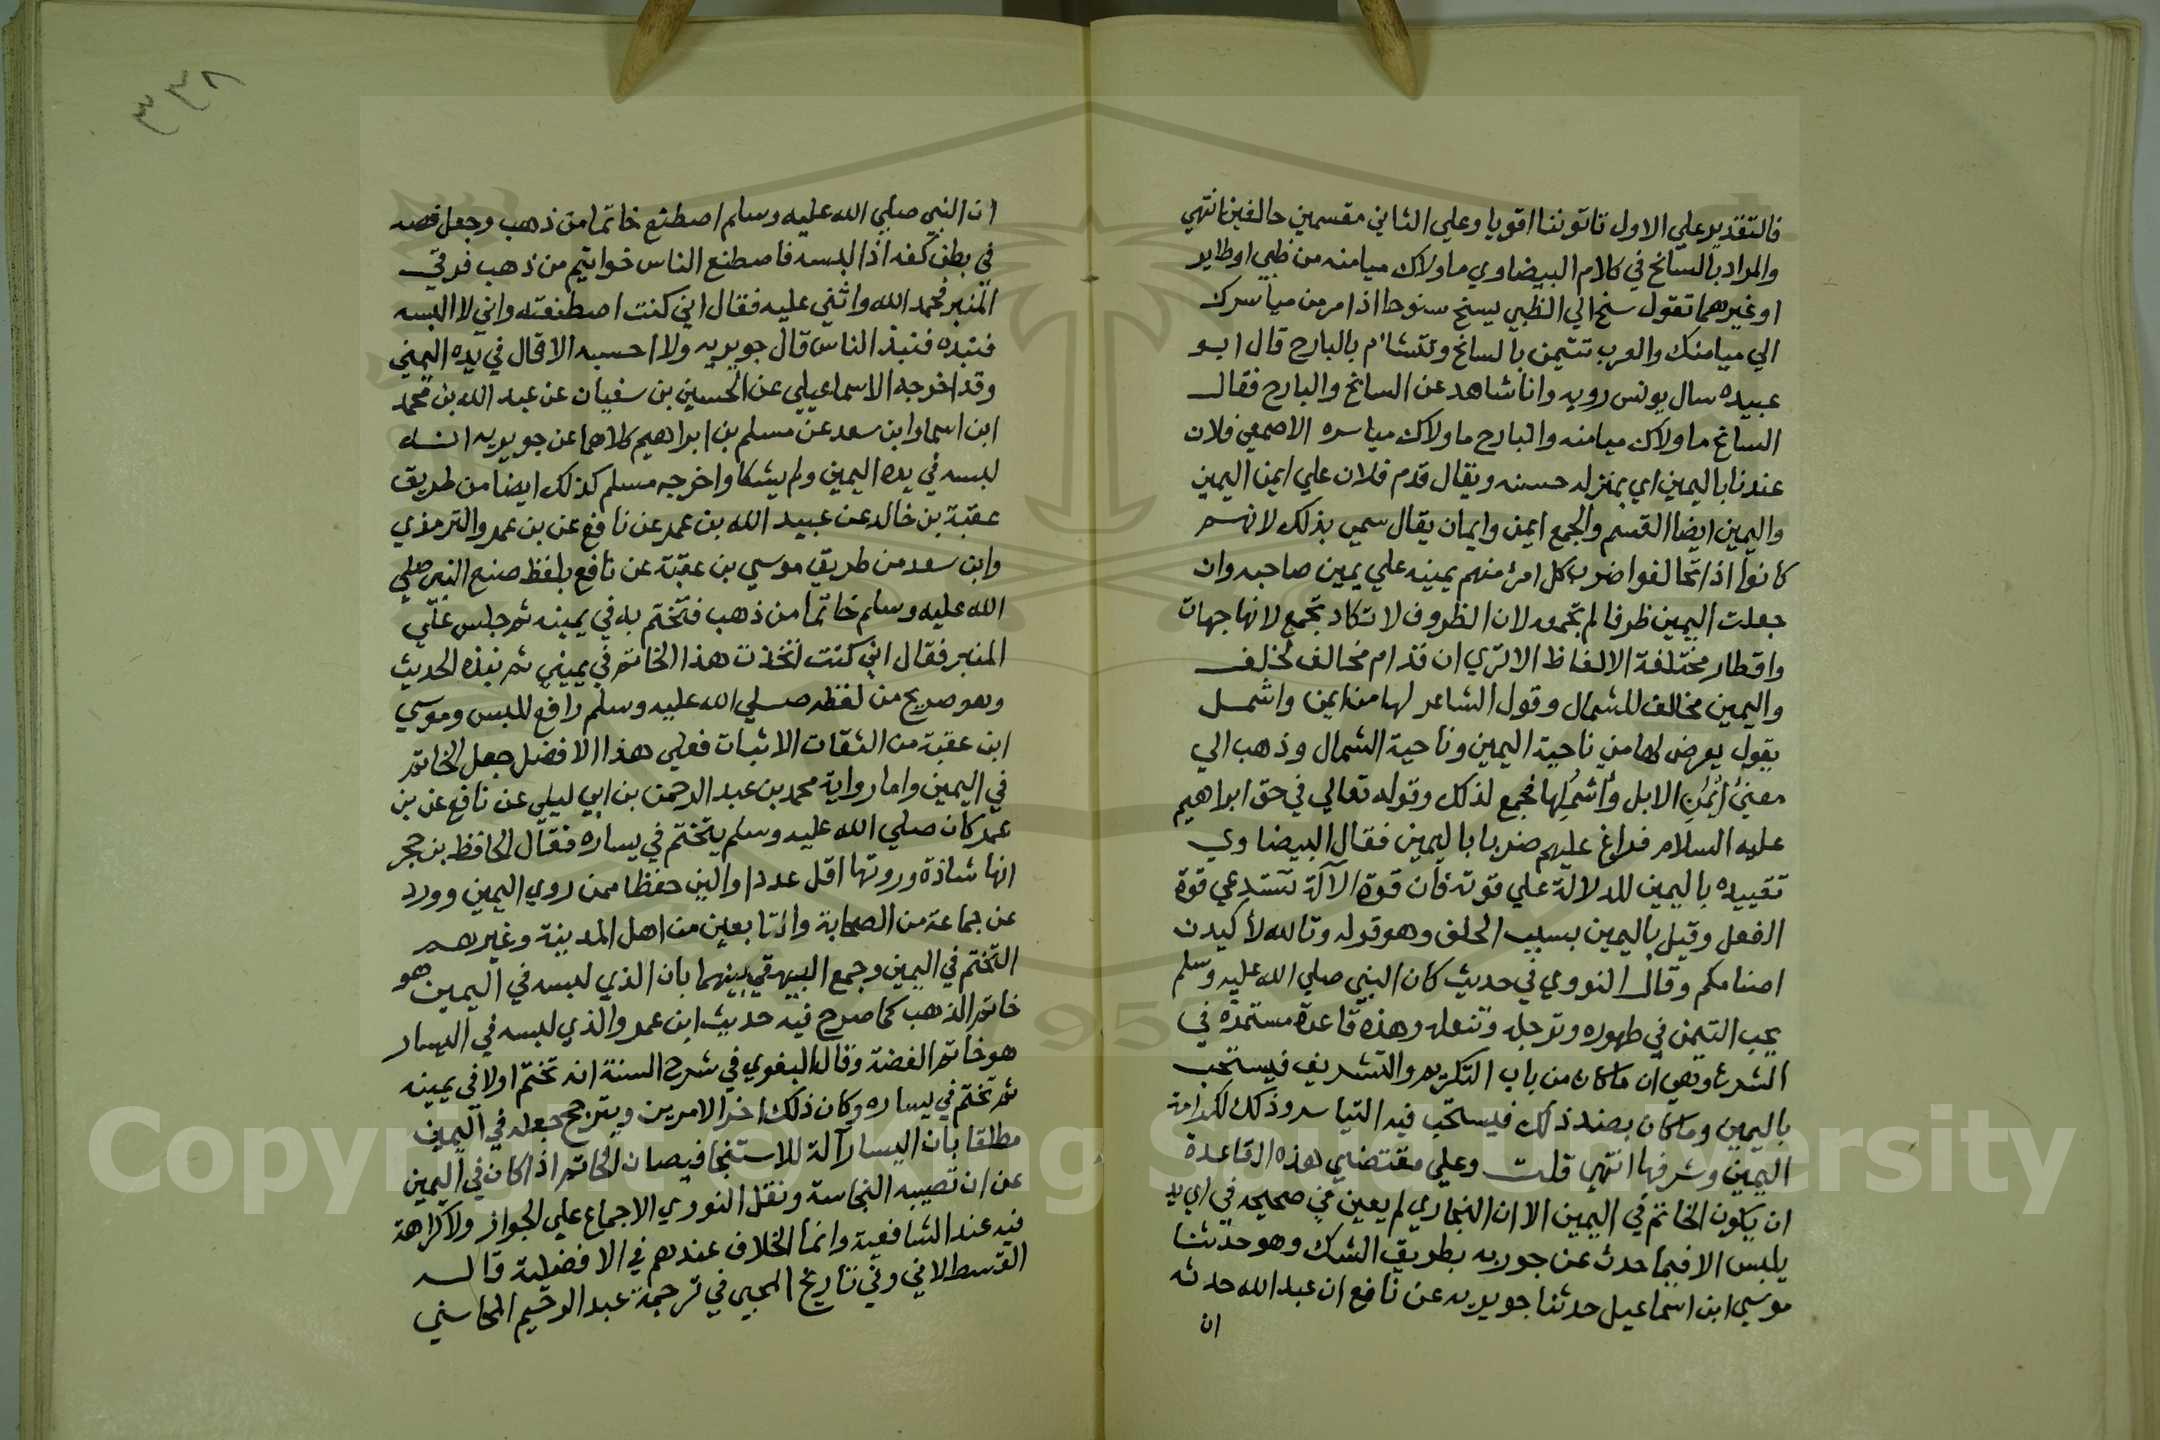 فالتقدير علي الاول تاتوننا اقويا وعلي الثاني مقسمين حالفين انتهي
والمراد بالسانح في كلام البيضاوي ما ولاك ميامنه من ظبي او طاير
او غيرهما تقول سنح الي الظبي يسنح سنوحا اذا مر من مياسرك
الي ميامنك والعرب تتيمن بالسانح وتتشام بالبارح قال ابو
عبيده سال يونس رويه وانا شاهد عن السانح والبارح فقال
السانح ما ولاك ميامنه والبارح ما ولاك مياسره الاصمعي فلان
عندنا باليمين اي بمنزله حسنه ويقال قدم فلان علي ايمن اليمين
واليمين ايضا القسم والجمع ايمن وايمان يقال سمي بذلك لانهم
كانوا اذا تحالفوا ضرب كل امرئ منهم يمينه علي يمين صاحبه وان
جعلت اليمين ظرفا لم تجمعه لان الظروف لا تكاد تجمع لانها جهات
واقطار مختلفة الالفاظ الا تري ان قدام مخالف لخلف
واليمين مخالف للشمال وقول الشاعر لها من ايمن واشمل
يقول يعرض لها من ناحية اليمين وناحية الشمال وذهب الي
معنيٰ اَيْمُنِ الابل وأشمُلِها فجمع لذلك وقوله تعالي في حق ابراهيم
عليه السلام فراغ عليهم ضربا باليمين فقال البيضاوي
تقييده باليمين للدلالة علي قوته فان قوة الآلة تستدعي قوة
الفعل وقيل باليمين بسبب الحلف وهو قوله وتالله لأكيدن
اصنامكم وقال النووي في حديث كان النبي صلي الله عليه وسلم
يحب التيمن في طهوره وترجله وتنعله وهذه قاعدة مستمرة في
الشرع وهي ان ما كان من باب التكريم والتشريف فيستحب
باليمين وما كان بضد ذلك فيستحب فيه التياسر وذلك لكرامة
اليمين وشرفها انتهي قلت وعلي مقتضي هذه القاعدة
ان يكون الخاتم في اليمين الا ان البخاري لم يعين في صحيحه في اي يد
يلبس الا فيما حدث عن جوريه بطريق الشك وهو حدثنا
موسي ابن اسماعيل حدثنا جويريه عن نافع ان عبد الله حدثه
ان
٣٣٨
ان النبي صلي الله عليه وسلم اصطنع خاتما من ذهب وجعل فصه
في بطن كفه اذا لبسه فاصطنع الناس خواتيم من ذهب فرقي
المنبر فحمد الله واثني عليه فقال اني كنت اصطنعته واني لا البسه
فنبذه فنبذ الناس قال جويريه ولا احسبه الا قال في يده اليمني
وقد اخرجه الاسماعيلي عن الحسين بن سفيان عن عبد الله بن محمد
ابن اسما وابن سعد عن مسلم بن ابراهيم كلاهما عن جويريه انه
لبسه في يده اليمين ولم يشكا واخرجه مسلم كذلك ايضا من طريق
عقبة بن خالد عن عبيد الله بن عمر عن نافع عن بن عمر والترمذي
وابن سعد من طريق موسي بن عقبة عن نافع بلفظ صنع النبي صلي
الله عليه وسلم خاتما من ذهب فتختم به في يمينه ثم جلس علي
المنبر فقال اني كنت اتخذت هذا الخاتم في يميني ثم نبذه الحديث
وهو صريح من لفظه صلي الله عليه وسلم رافع للبس وموسي
ابن عقبة من الثقات الاثبات فعلي هذا الافضل جعل الخاتم
في اليمين واما رواية محمد بن عبد الرحمن بن ابي ليلي عن نافع عن بن
عمر كان صلي الله عليه وسلم يتختم في يساره فقال الحافظ بن حجر
انها شاذة ورواتها اقل عددا والين حفظا ممن روي اليمين وورد
عن جماعة من الصحابة والتابعين من اهل المدينة وغيرهم
التختم في اليمين وجمع البيهقي بينهما بان الذي لبسه في اليمين هو
خاتم الذهب كما صرح فيه حديث ابن عمر والذي لبسه في اليسار
هو خاتم الفضة وقال البغوي في شرح السنة انه تختم اولا في يمينه
ثم تختم في يساره وكان ذلك اخر الامرين ويترجح جعله في اليمين
مطلقا بان اليسار آلة للاستنجا فيصان الخاتم اذا كان في اليمين
عن ان تصيبه النجاسة ونقل النووي الاجماع علي الجواز ولا كراهة
فيه عند الشافعية وانما الخلاف عندهم في الافضلية قاله
القسطلاني وفي تاريخ المحبي في ترجمة عبد الرحيم المحاسني
Copyright © King Saud University